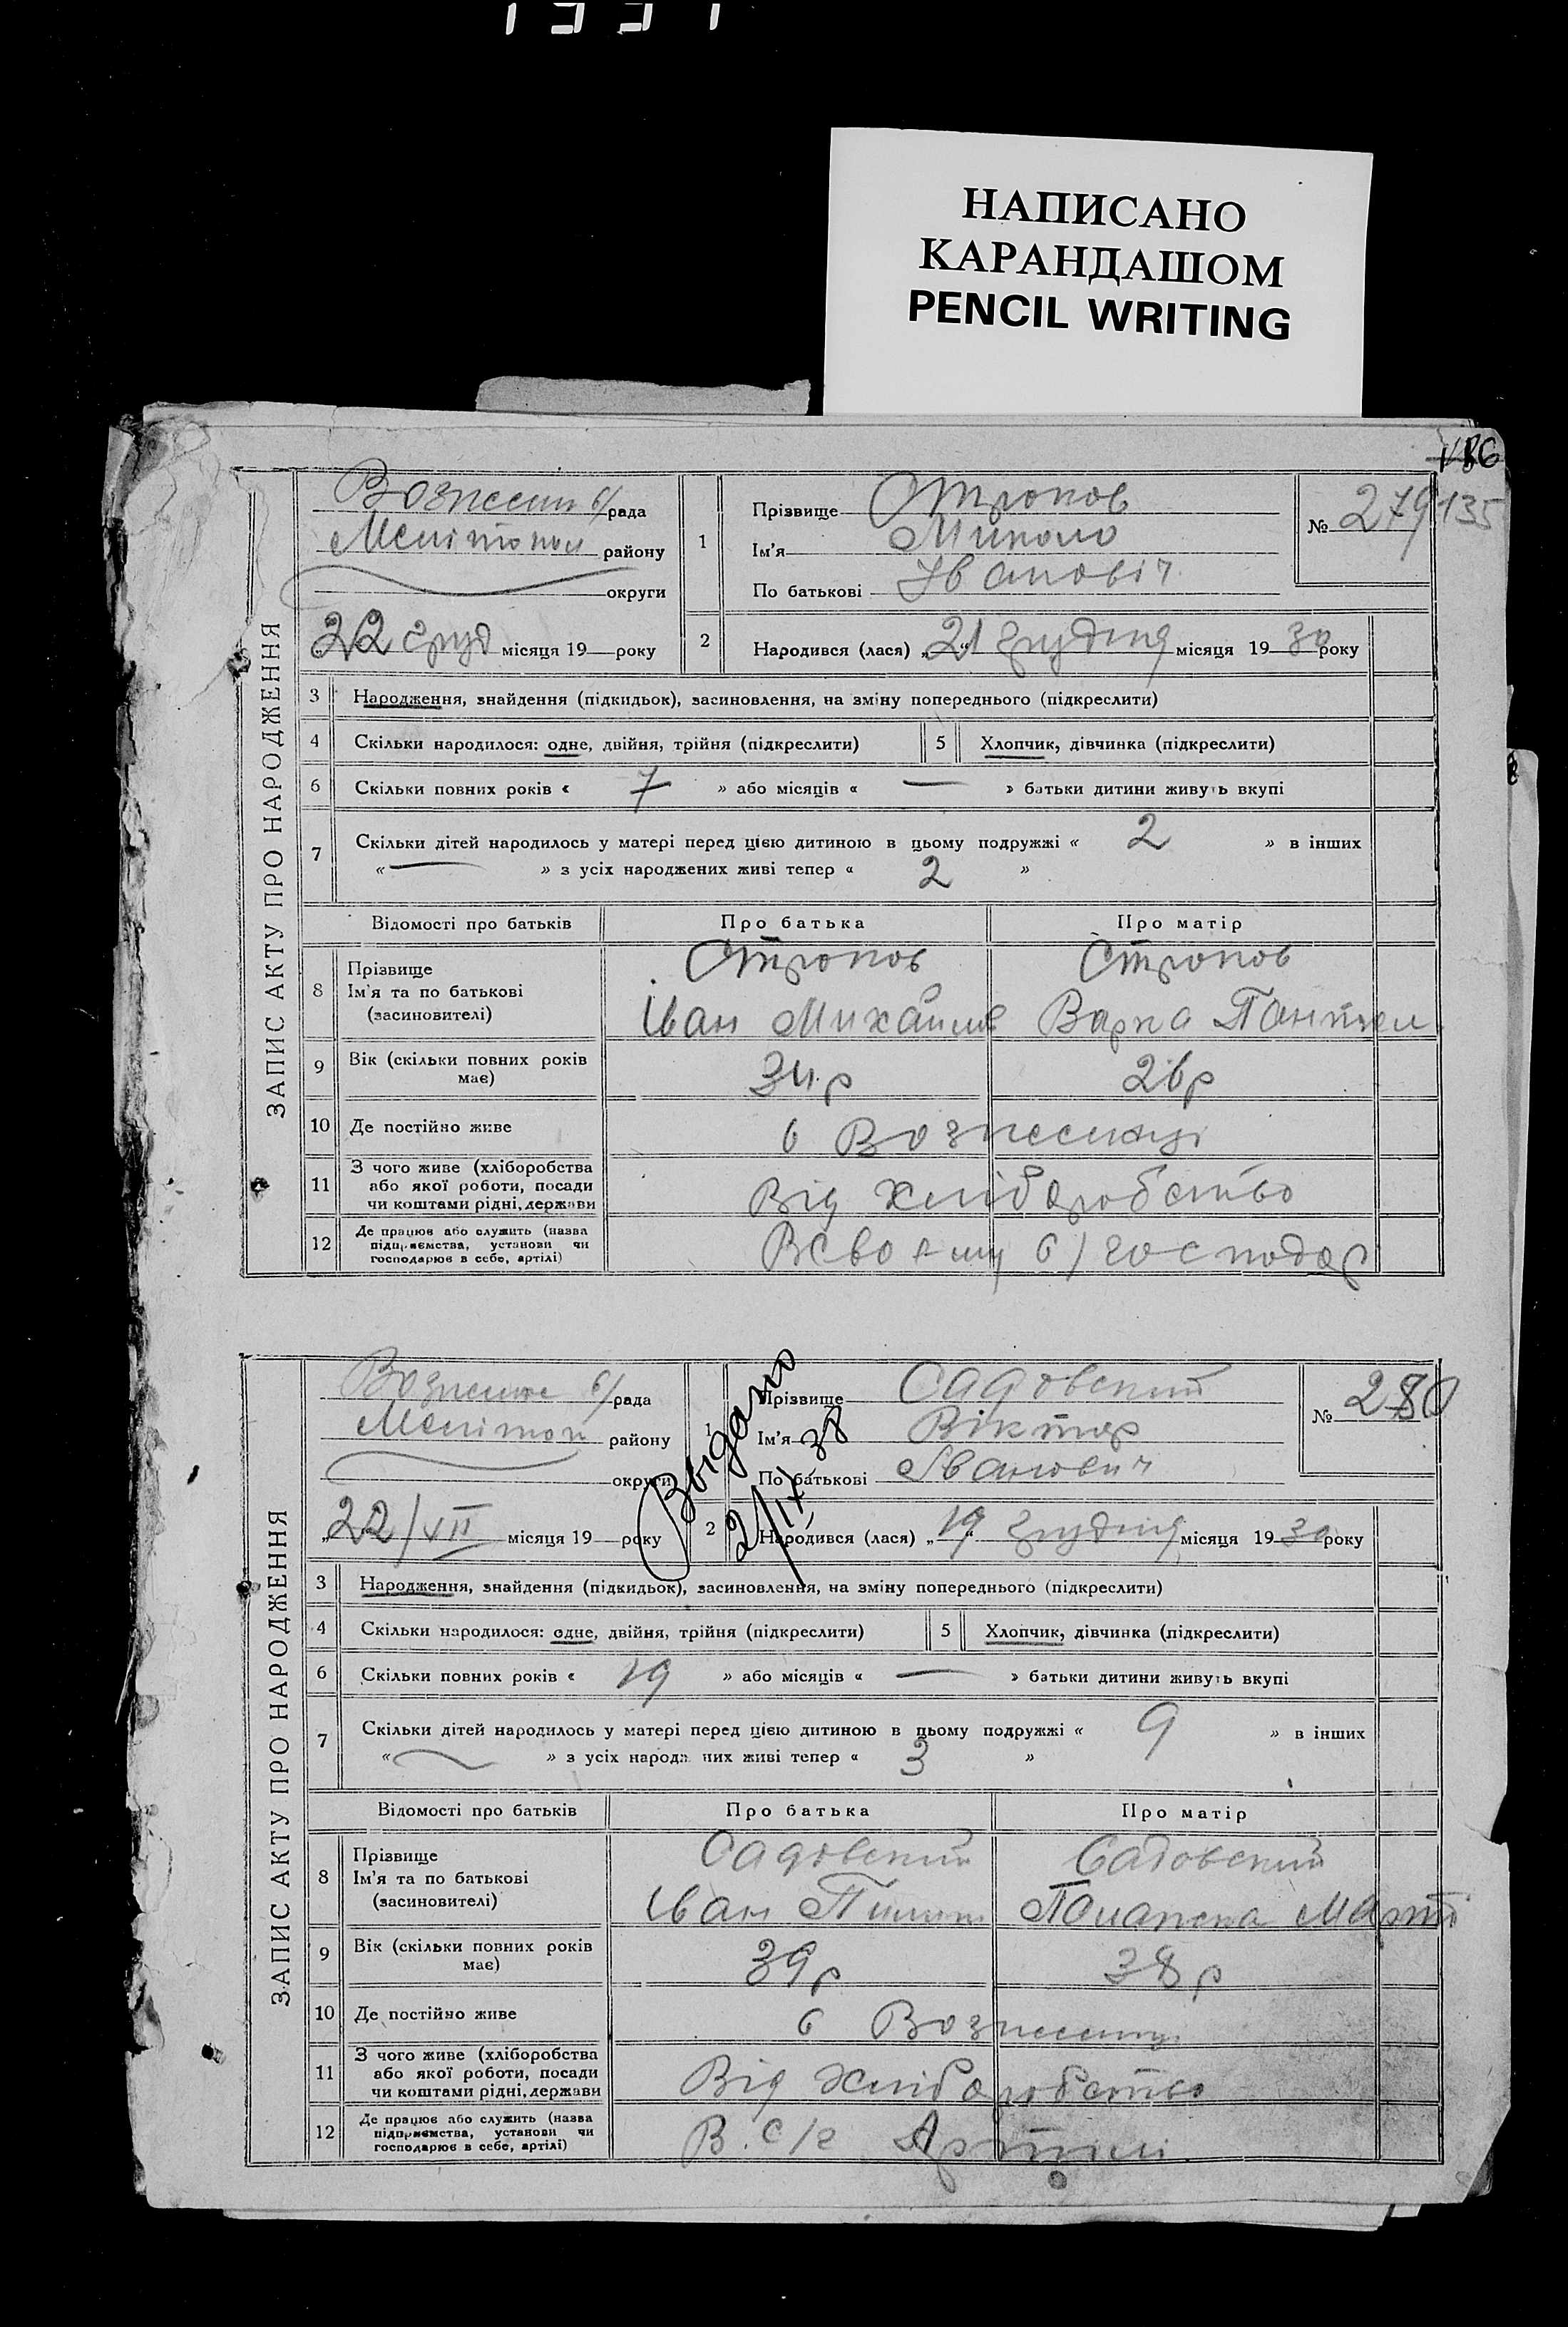 1991
НАПИСАНО
КАРАНДАШОМ
PENCIL WRITING
135
ЗАПИС АКТУ ПРО НАРОДЖЕННЯ
Вознесен с/рада
Мелітопол району
округи
22 груд місяця 19 року
1 Прізвище Стропов
Ім'я Микола
По батькові Іванович
№ 279
2 Народився (лася) „21“ грудня місяця 1930 року
3 Народження, знайдення (підкидьок), засиновлення, на зміну попереднього (підкреслити)
4 Скільки народилося: одне, двійня, трійня (підкреслити) 5 Хлопчик, дівчинка (підкреслити)
6 Скільки повних років « 7 » або місяців « — » батьки дитини живуть вкупі
7 Скільки дітей народилось у матері перед цією дитиною в цьому подружжі « 2 » в інших
« — » з усіх народжених живі тепер « 2 »
Відомості про батьків Про батька Про матір
8 Прізвище Стропов Стропов
Ім'я та по батькові Іван Михайлов Варка Пантел
(засновителі)
9 Вік (скільки повних років має) 34 р 26 р
10 Де постійно живе в Вознесенці
11 З чого живе (хліборобства
або якої роботи, посади Від хліборобство
чи коштами рідні, держави
12 Де працює або служить (назва
підприємства, установи чи В своєму с/господар
господарює в себе, артілі)
ЗАПИС АКТУ ПРО НАРОДЖЕННЯ
с/рада
Мелітоп району
округи
„22/XII місяця 19 року
Выдано
2/IX 38
1 Прізвище Садовский
Ім'я Віктор
По батькові Іванович
№ 280
2 Народився (лася) „19“ грудня місяця 1930 року
3 Народження, знайдення (підкидьок), засиновлення, на зміну попереднього (підкреслити)
4 Скільки народилося: одне, двійня, трійня (підкреслити) 5 Хлопчик, дівчинка (підкреслити)
6 Скільки повних років « 19 » або місяців « — » батьки дитини живуть вкупі
7 Скільки дітей народилось у матері перед цією дитиною в цьому подружжі « 9 » в інших
« — » з усіх народжених живі тепер « 3 »
Відомості про батьків Про батька Про матір
8 Прізвище Садовский Садовский
Ім'я та по батькові Іван Пилип
(засиновителі)
9 Вік (скільки повних років має) 39 р 38 р
10 Де постійно живе в Вознесенці
11 З чого живе (хліборобства
або якої роботи, посади Від хліборобство
чи коштами рідні, держави
12 Де працює або служить (назва
підприємства, установи чи В. с/г Артилі
господарює в себе, артілі)